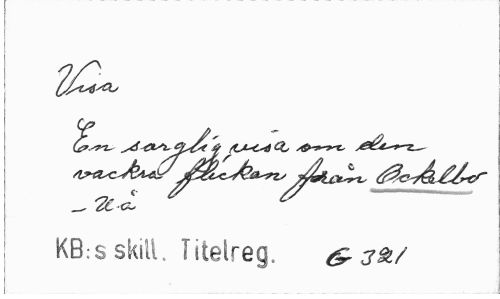 Visa
En sorglig visa om den
vackra flickan från Ockelbo
- U.å
KB:s skill. Titelreg. G 321